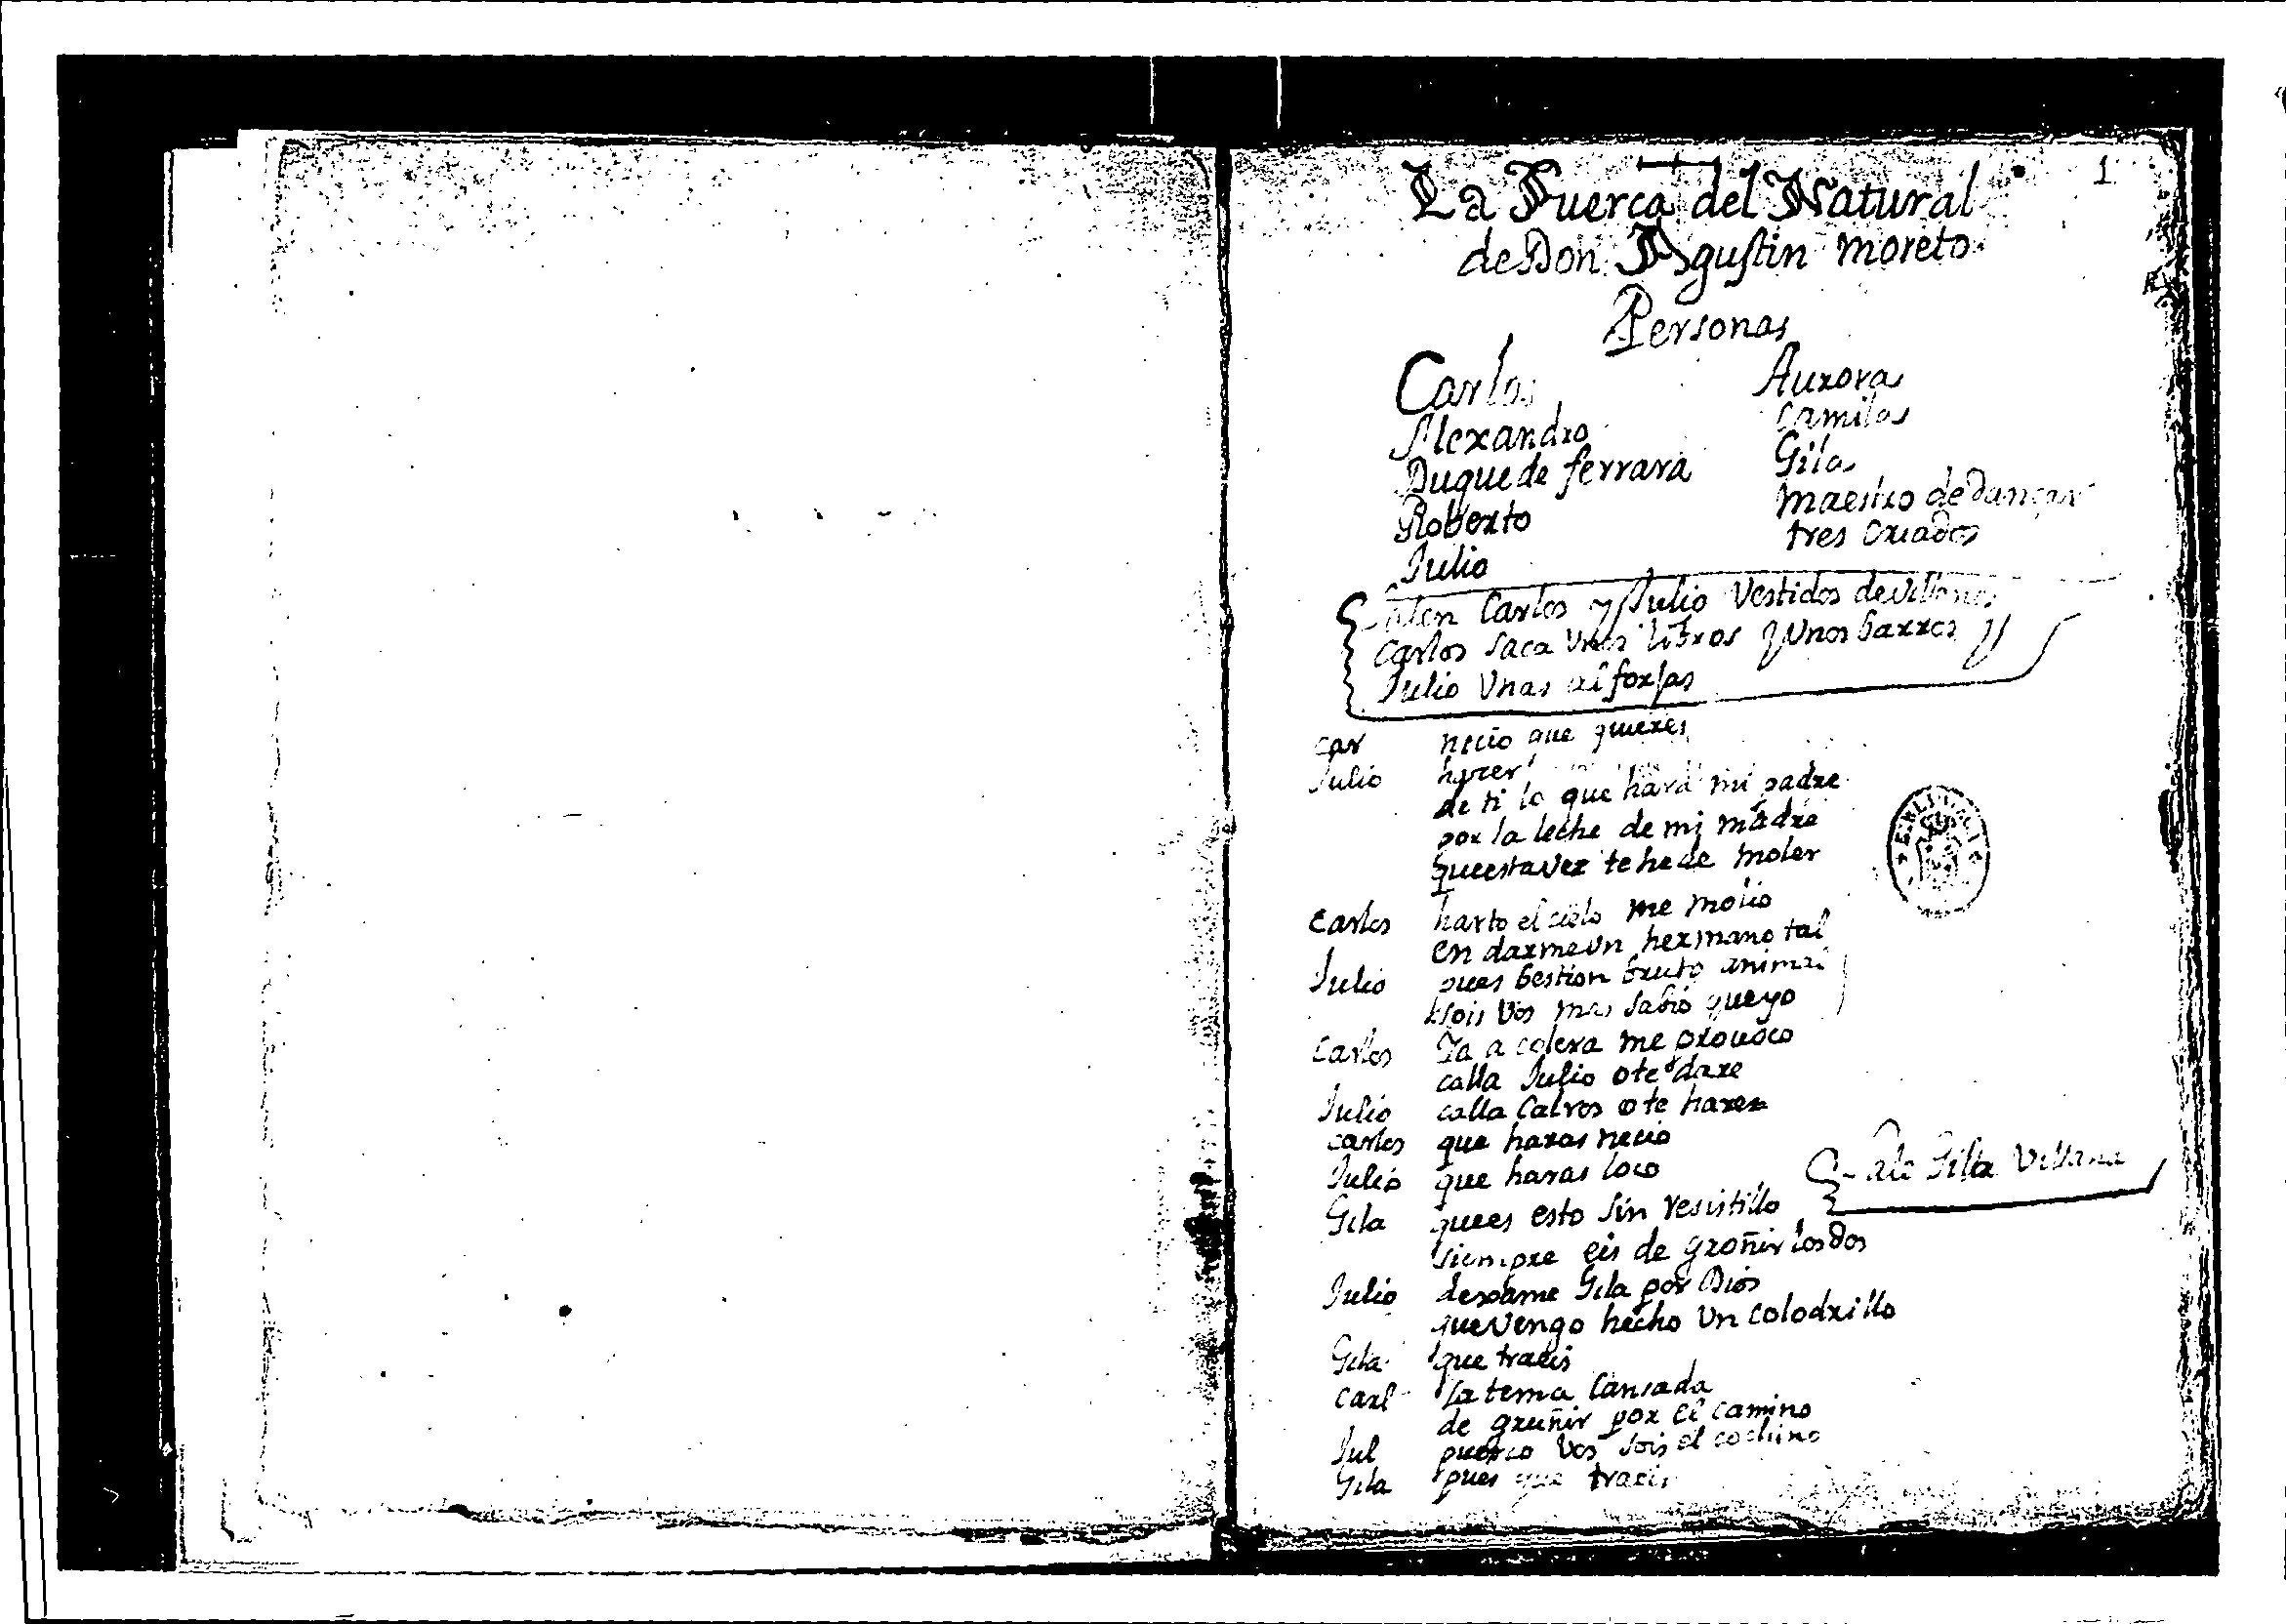 1
La Fuerça del Natural
de Don Agustin moreto
Personas
Carlos
Alexandro
Duque de ferrara
Roberto
Julio
Aurora
Camila
Gila
maestro de dançar
tres criados
Salen Carlos y Julio Vestidos de villanos
Carlos saca Unos libros y Unos barros y
Julio Unas alforjas
Car necio que quieres
Julio hazer
de ti lo que hara mi padre
por la leche de mi madre
que esta vez te he de moler
Carlos harto el cielo me molio
en darme un hermano tal
Julio pues bestion bruto animal
sois Vos mas sabio que yo
Carlos Ya a colera me provoco
calla Julio o te dare
Julio calla Calros o te hare
Carlos que haras necio
Julio que haras loco
Sale Gila Villana
Gila que es esto sin resistillo
siempre eis de groñir los dos
Julio dexame Gila por Dios
que vengo hecho Un colodrillo
Gila que traeis
Carl La tema cansada
de gruñir por el camino
Jul puerco Vos sois el cochino
Gila pues que traeis